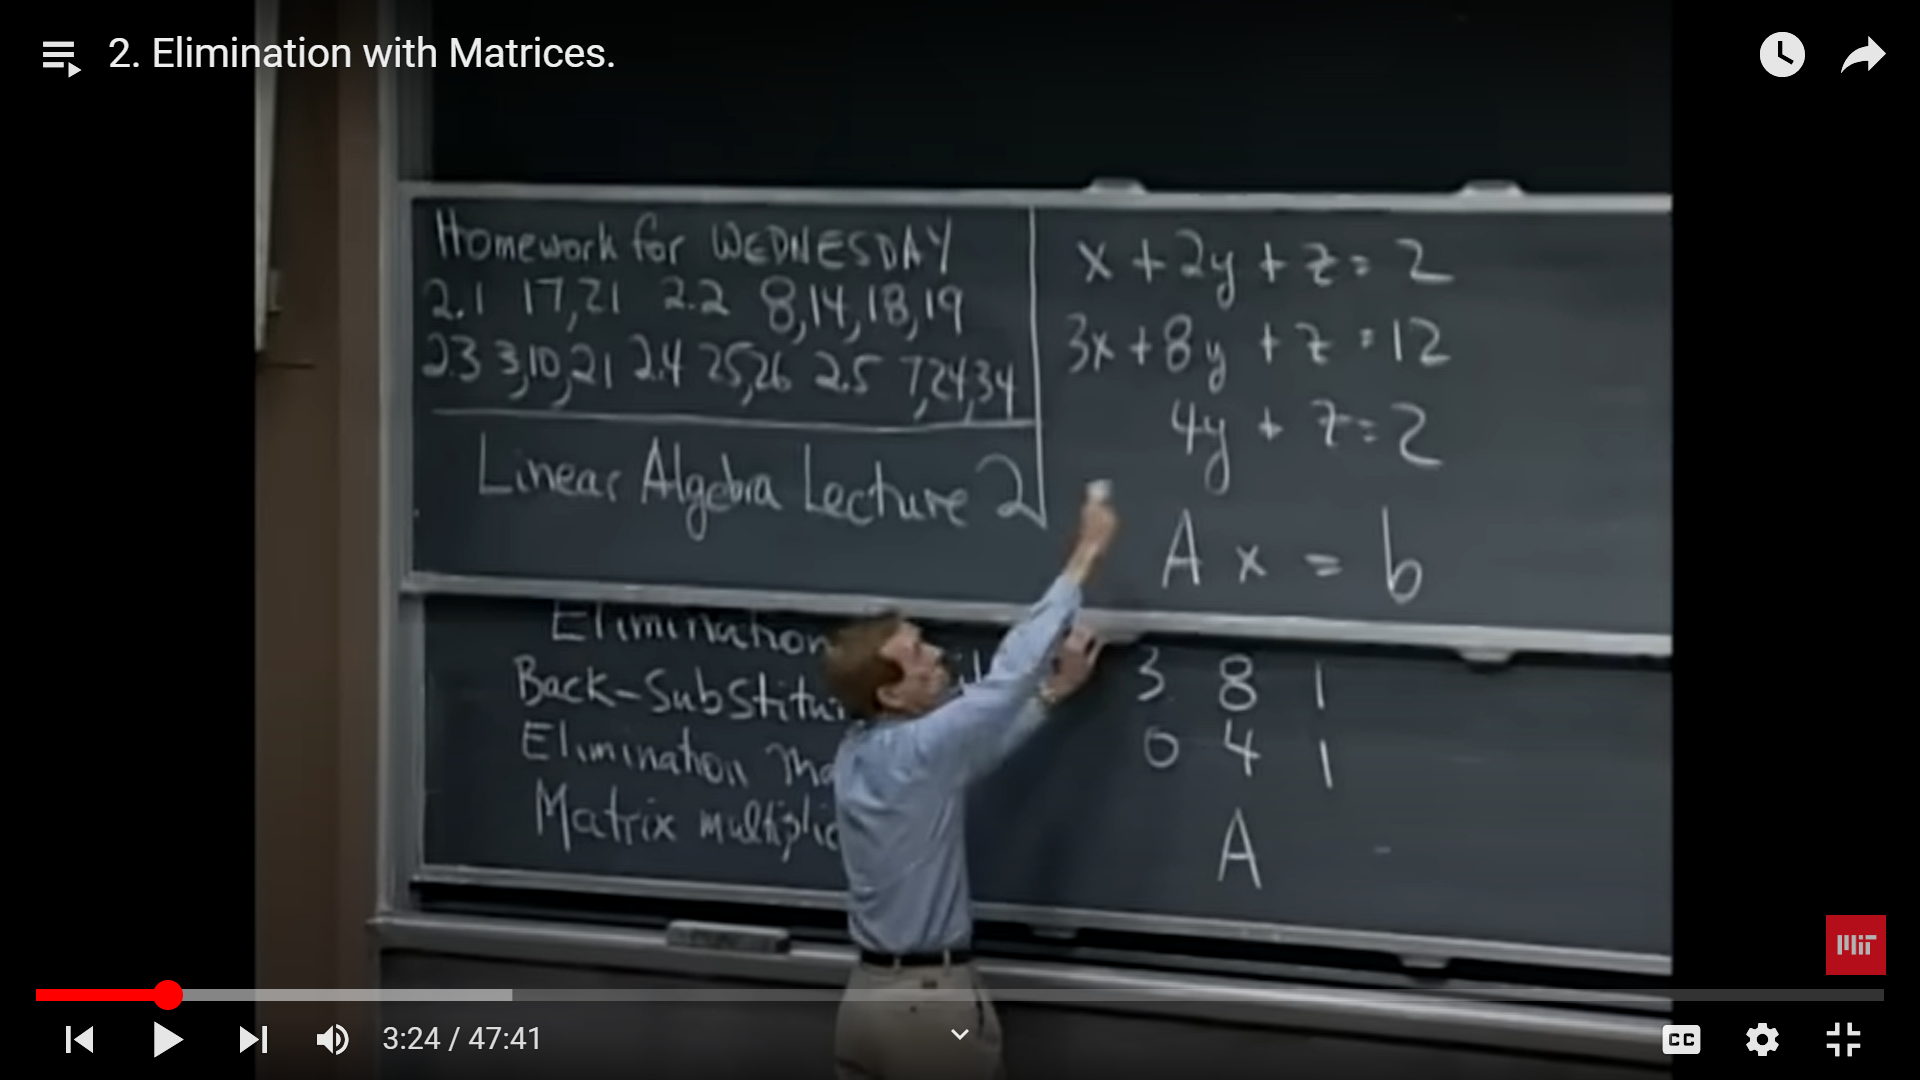 2. Elimination with Matrices.
Homework for WEDNESDAY
2.1 17,21 2.2 8,14,18,19
2.3 3,10,21 2.4 25,26 2.5 7,24,34
Linear Algebra Lecture 2
x + 2y + z = 2
3x + 8y + z = 12
4y + z = 2
A x = b
Elimination
Back-Substitu
Elimination Ma
Matrix multiplic
3 8 1
0 4 1
A
MIT
3:24 / 47:41
CC